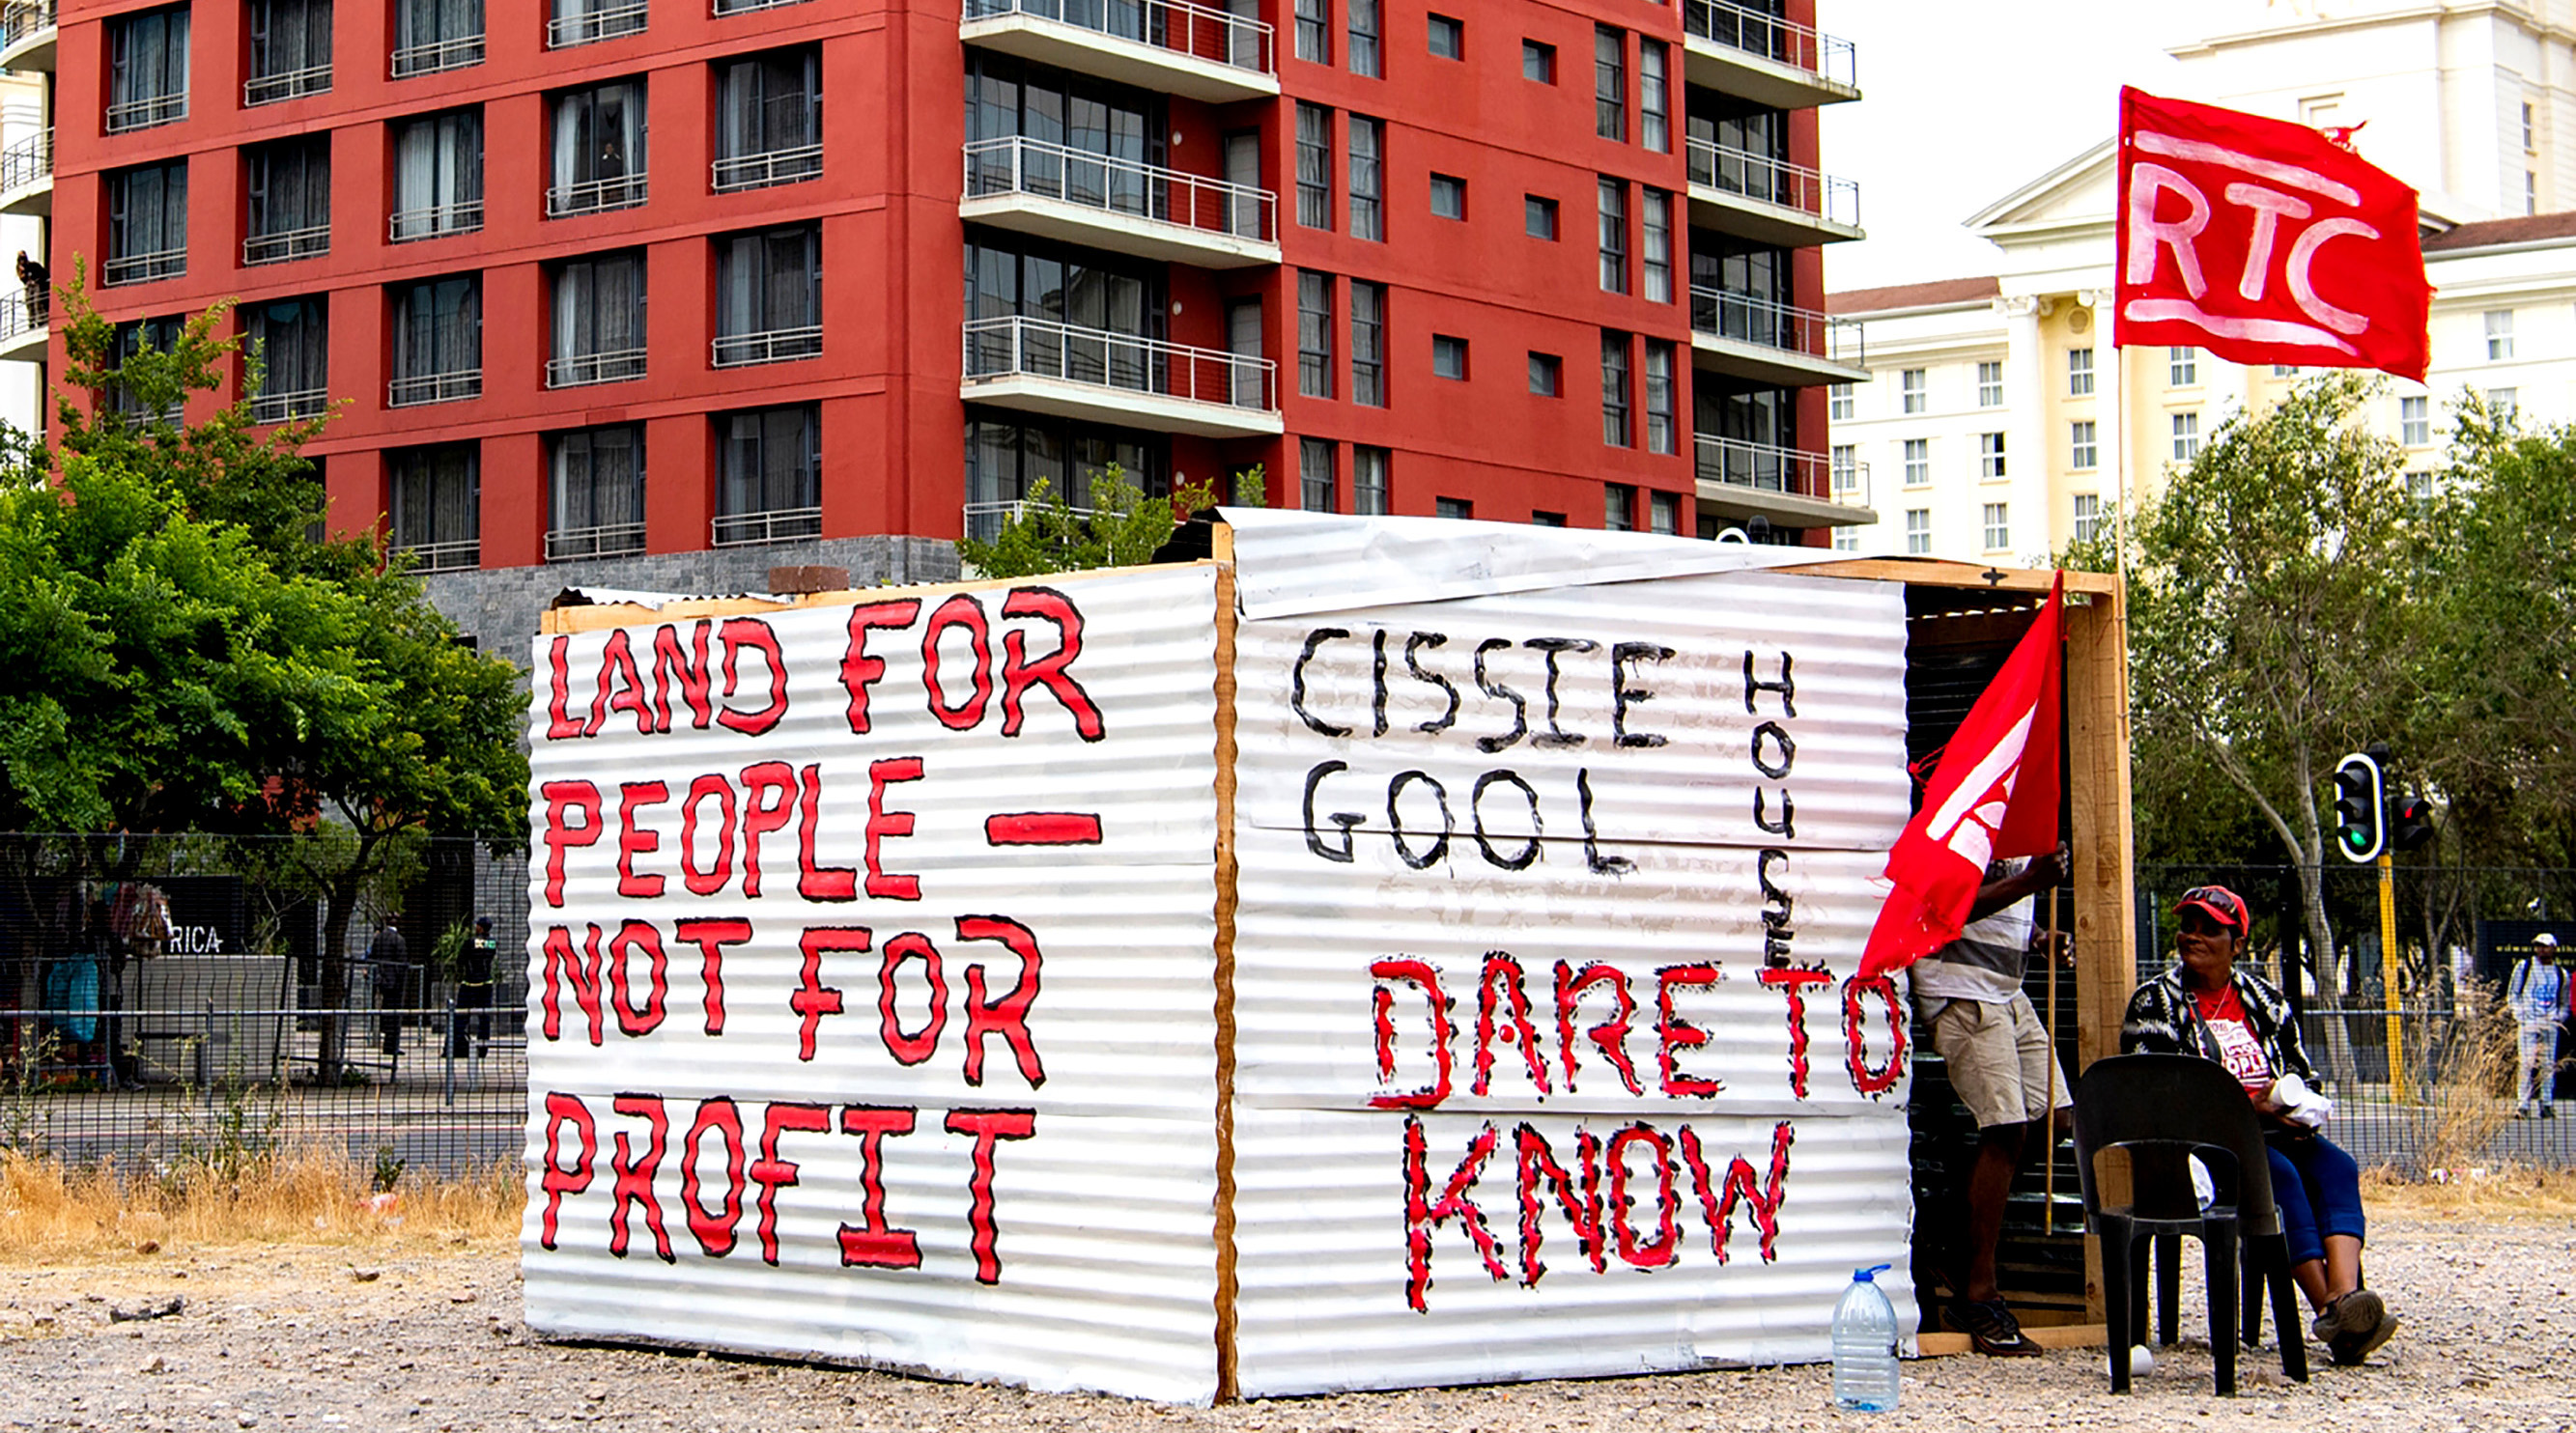 LAND FOR
PEOPLE —
NOT FOR
PROFIT
CISSIE
GOOL
HOUSE
DARE TO
KNOW
RTC
RICA